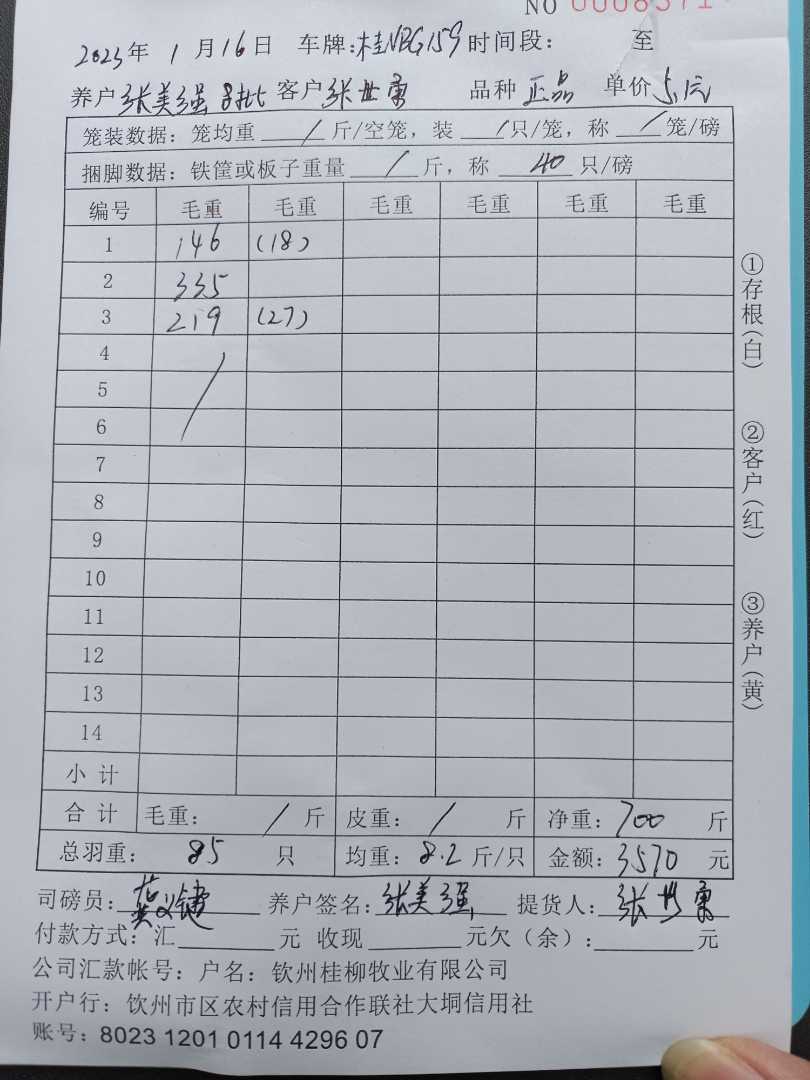 NO 0008371
2023年 1月16日 车牌:桂NBG159 时间段: 至
养户 张美强 8批 客户 张世 品种 正品 单价 5.1元
笼装数据: 笼均重 / 斤/空笼, 装 / 只/笼, 称 / 笼/磅
捆脚数据: 铁筐或板子重量 / 斤, 称 40 只/磅
编号 毛重 毛重 毛重 毛重 毛重 毛重
1 146 (18)
2 335
3 219 (27)
4 /
5
6
7
8
9
10
11
12
13
14
小计
合计 毛重: / 斤 皮重: / 斤 净重: 700 斤
总羽重: 85 只 均重: 8.2 斤/只 金额: 3570 元
司磅员: 养户签名: 张美强 提货人: 张世
付款方式: 汇 元 收现 元欠(余): 元
公司汇款帐号: 户名: 钦州桂柳牧业有限公司
开户行: 钦州市区农村信用合作联社大垌信用社
账号: 8023 1201 0114 4296 07
①存根(白)
②客户(红)
③养户(黄)